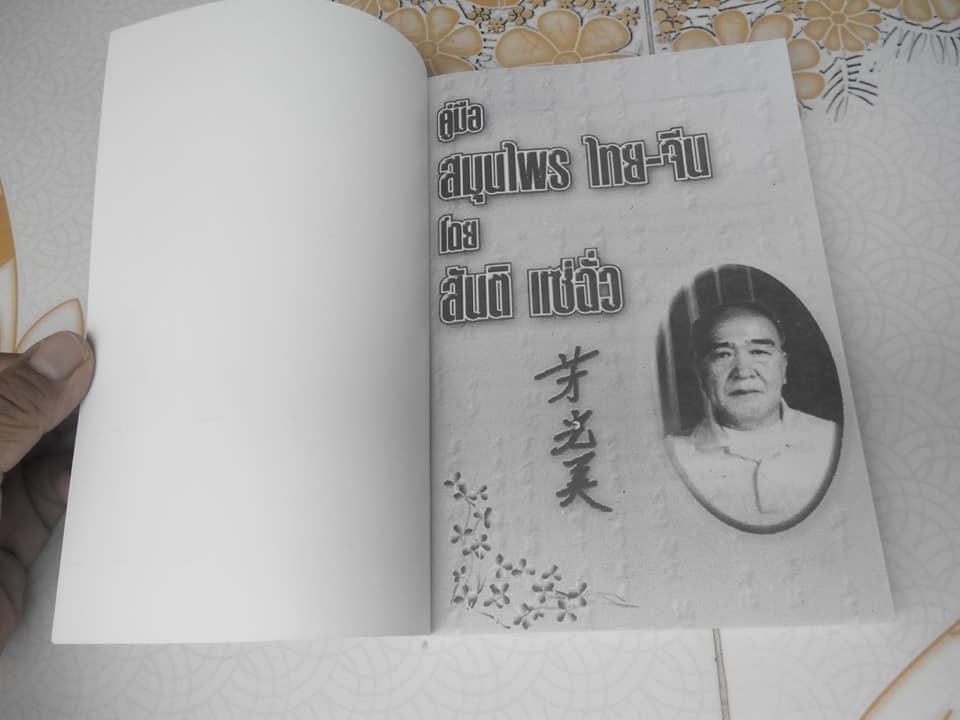 คู่มือ
สมุนไพร ไทย-จีน
โดย
สันติ แซ่ฉั่ว
光
美